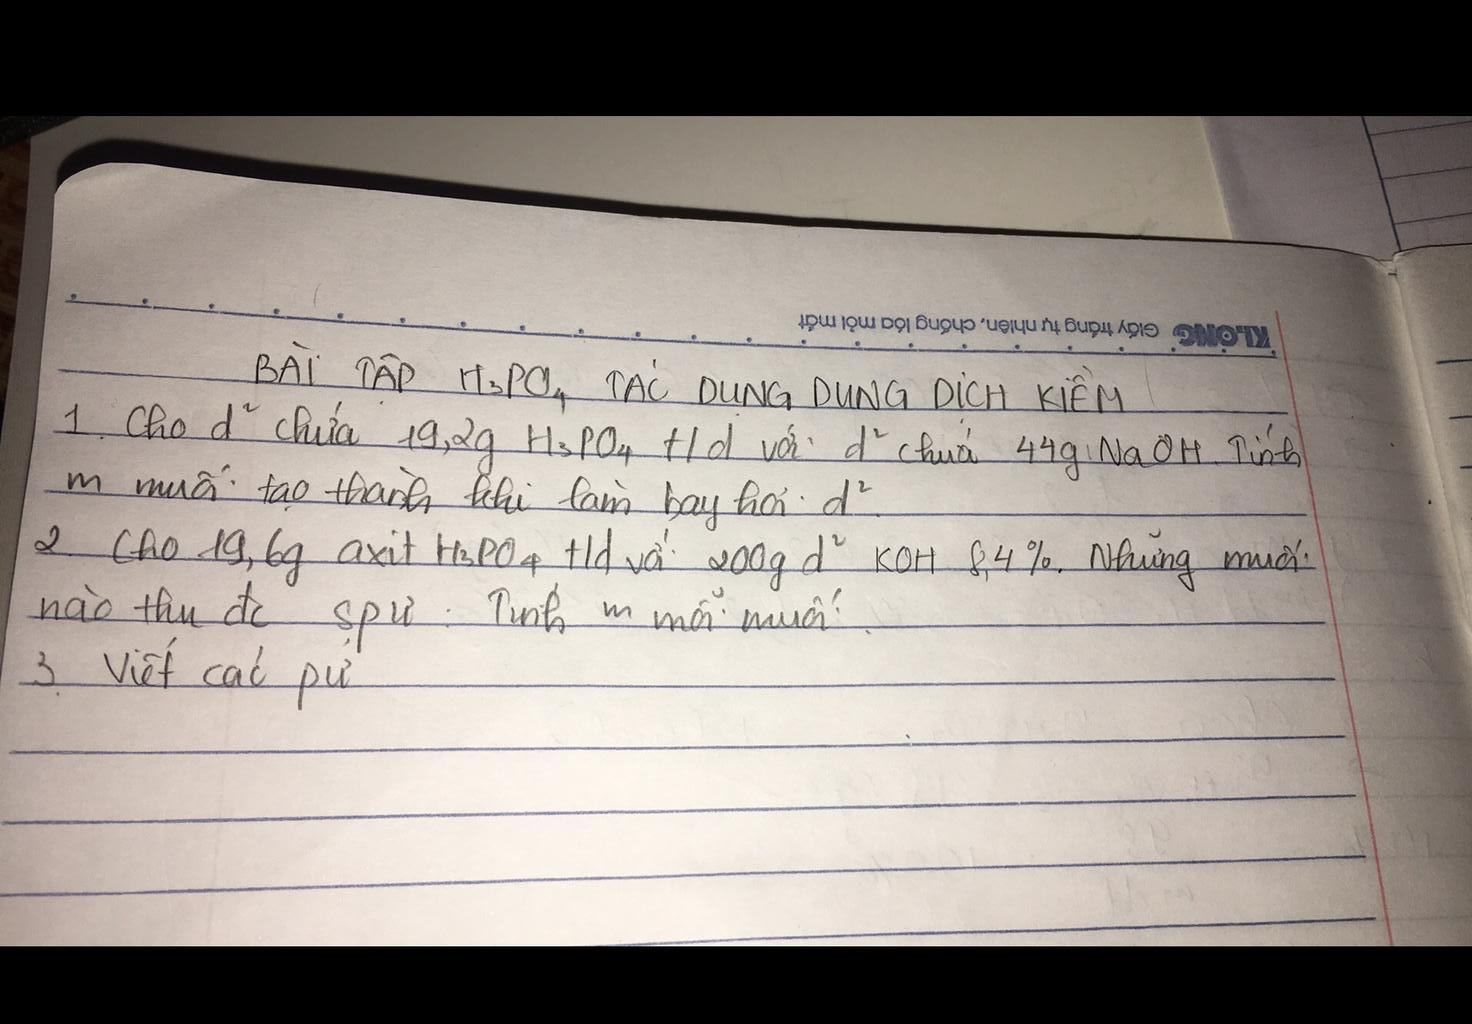 KLONG Giấy trắng tự nhiên, chống lóa mỏi mắt
BÀI TẬP H₃PO₄ TÁC DỤNG DUNG DỊCH KIỀM
1. Cho d² chứa 19,2g H₃PO₄ t/d với d² chứa 44g NaOH. Tính
m muối tạo thành khi làm bay hơi d².
2. Cho 19,6g axit H₃PO₄ t/d với 200g d² KOH 8,4%. Những muối
nào thu đc spư. Tính m mỗi muối.
3. Viết các pư